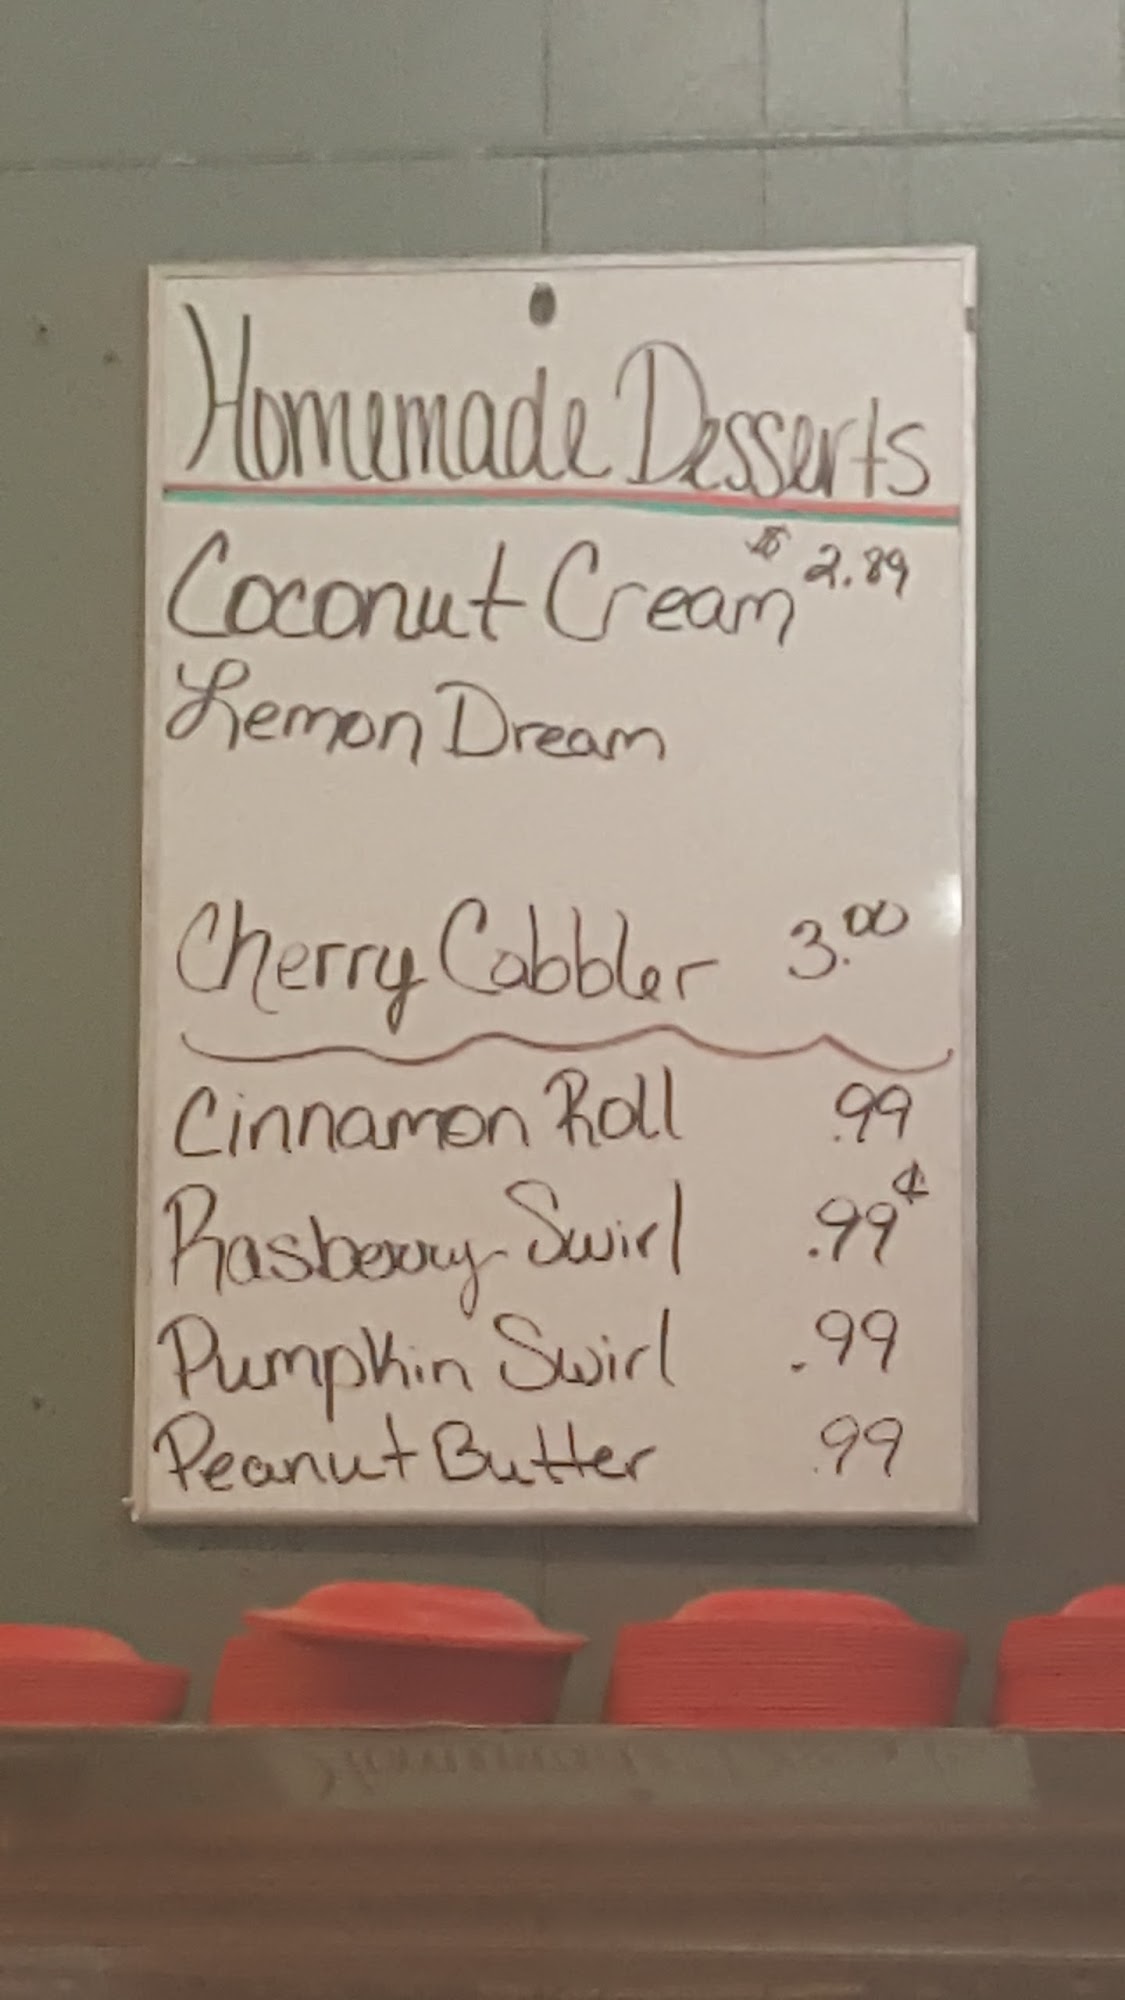 Homemade Desserts
Coconut Cream $2.89
Lemon Dream
Cherry Cobbler 3.00
Cinnamon Roll .99
Rasberry Swirl .99¢
Pumpkin Swirl .99
Peanut Butter .99